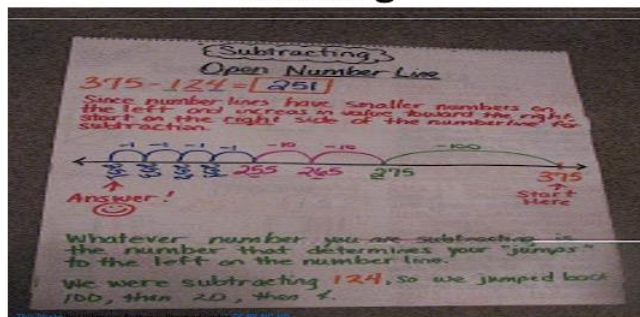 Subtracting
Open Number Line
375-124=[251]
Since number lines have smaller numbers on
the left and increas in value toward the right,
start on the right side of the numberline for
subtraction.
-1 -1 -1 -1 -10 -10 -100
255 265 275 375
Answer! Start
Here
Whatever number you are subtracting is
the number that determines your "jumps"
to the left on the number line.
We were subtracting 124, so we jumped back
100, then 20, then 4.